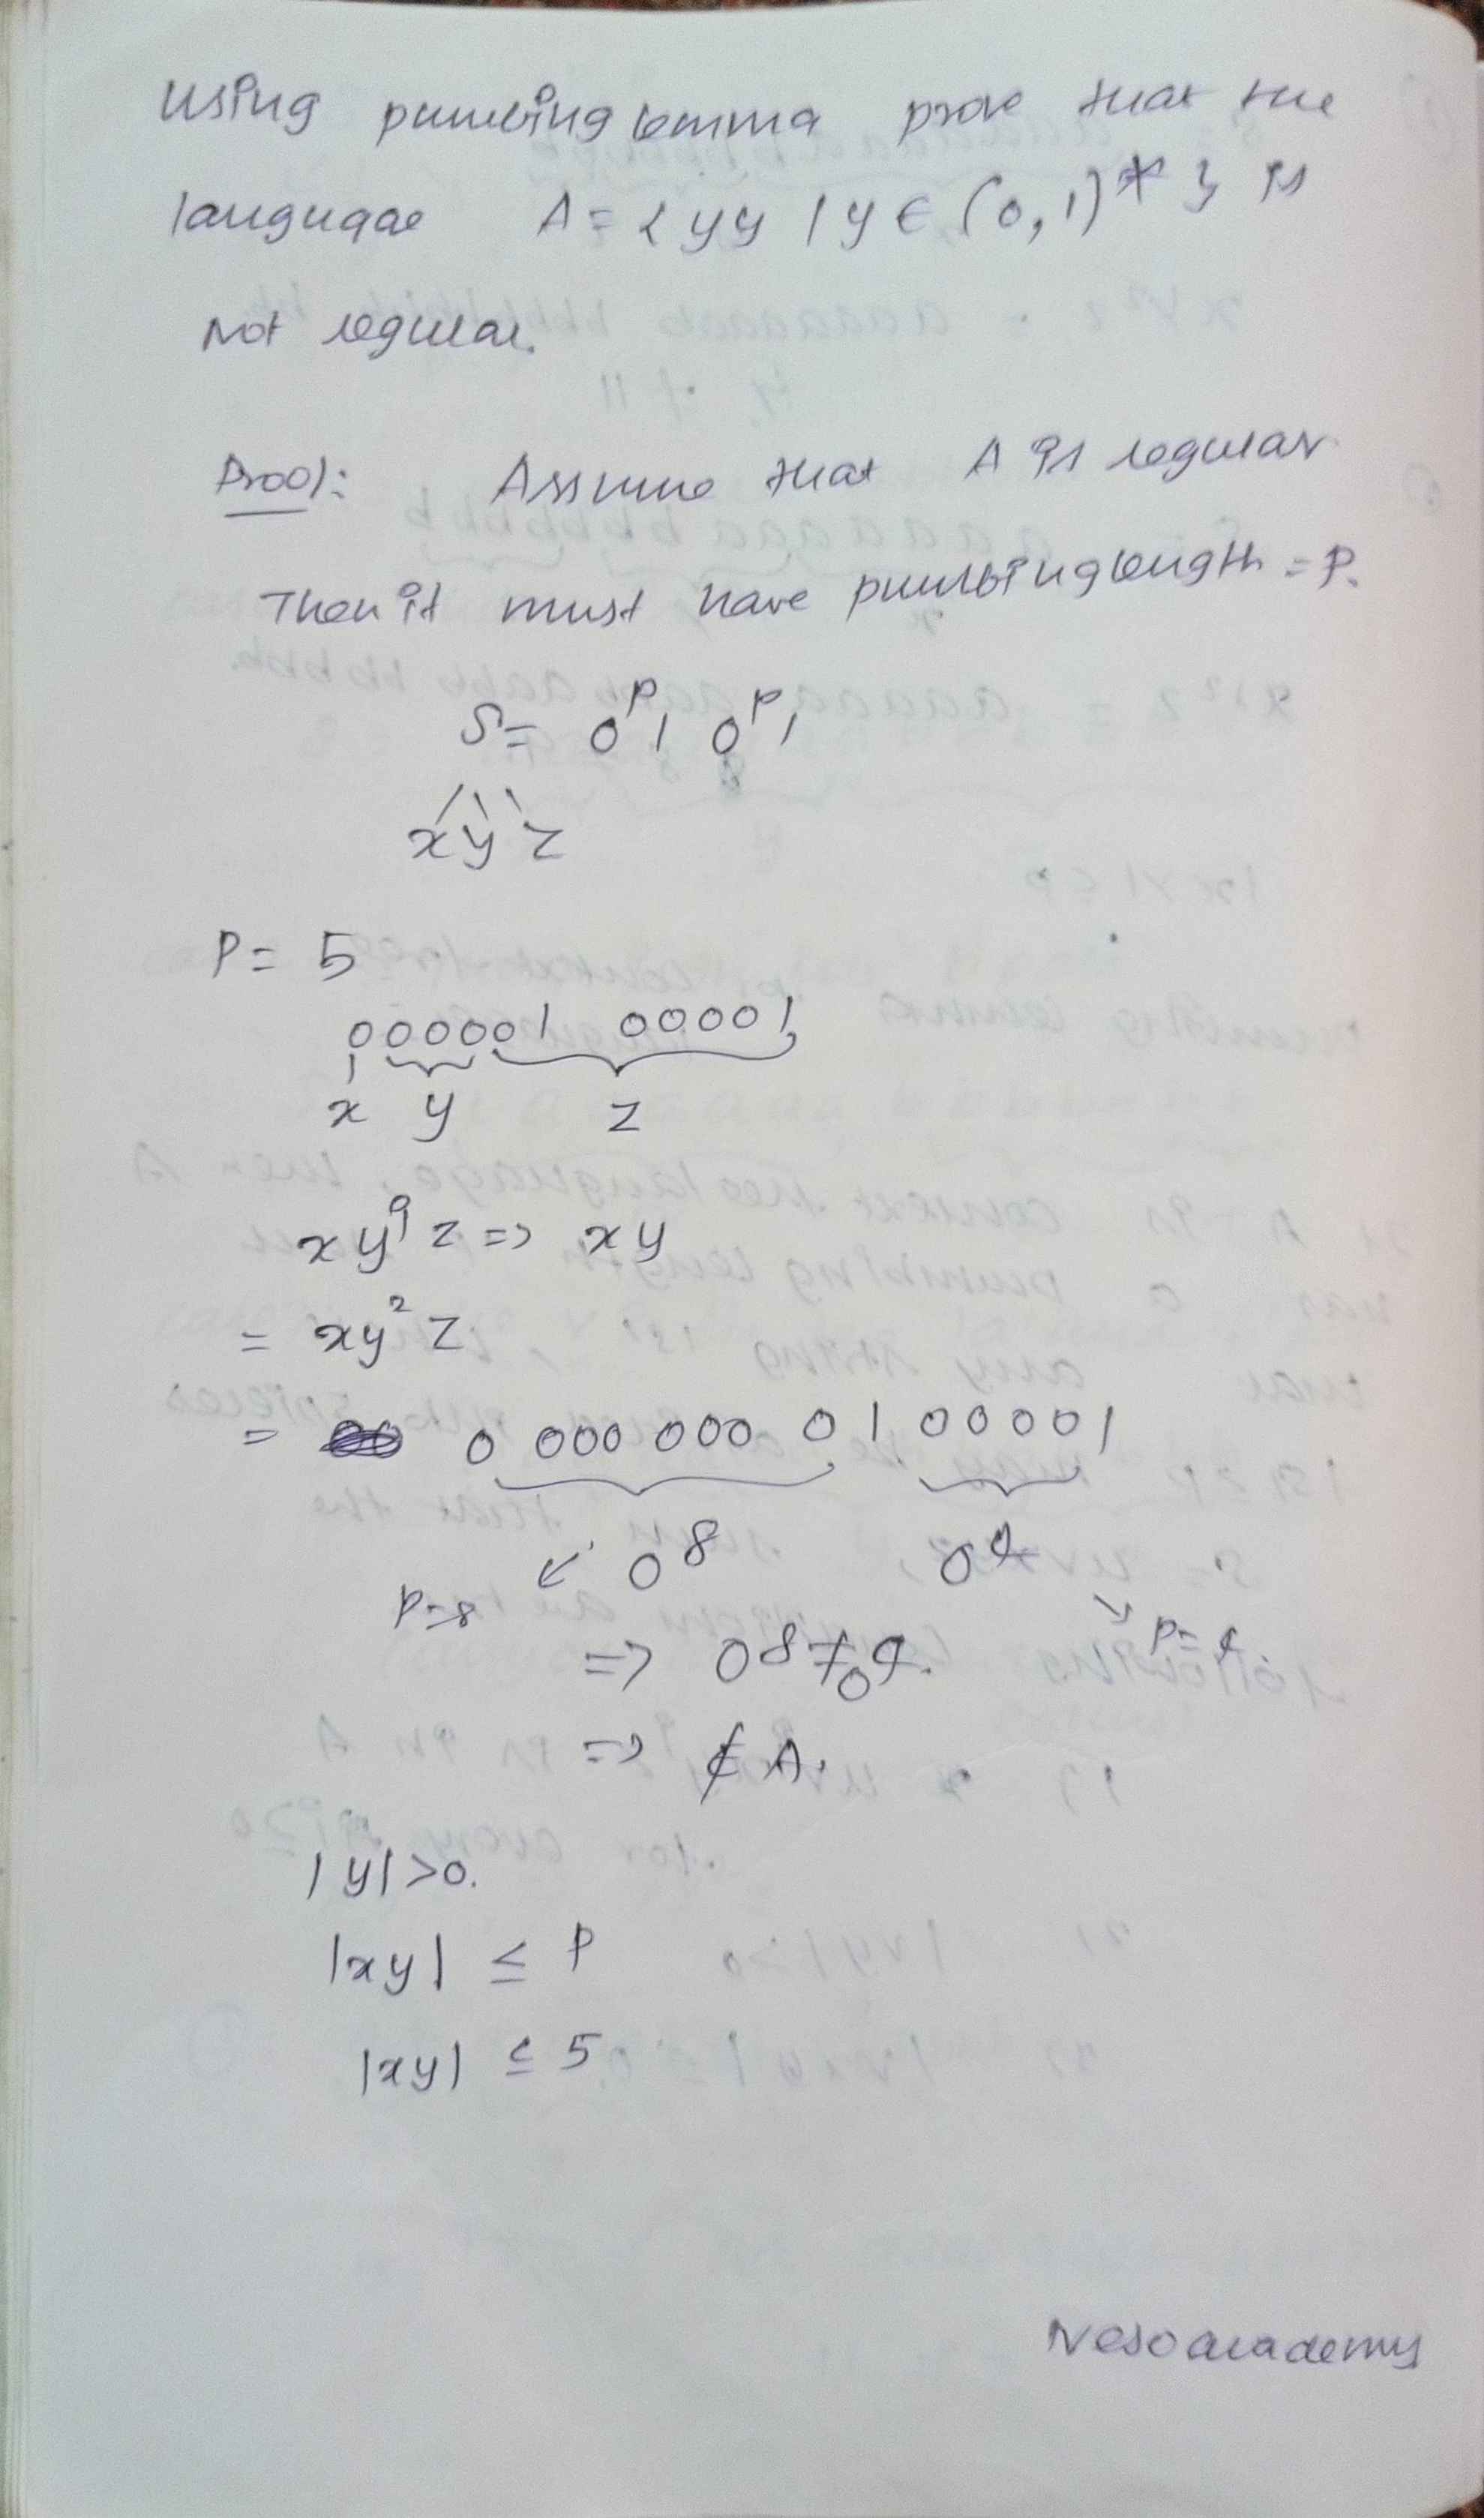 Using pumbing lemma prove that the
language A = { yy | y ∈ (0,1)* } is
Not regular.
Proof: Assume that A is regular
Then it must have pumbing length = P.
S = 0^P 1 0^P 1
x y z
P = 5
000001 00001
x y z
xy^i z => xy
= xy^2 z
= 0 000 000 01 00001
0^8 0^4
P=8 P=4
=> 0^8 ≠ 0^4.
=> ∉ A.
|y| > 0.
|xy| ≤ P
|xy| ≤ 5
Neso academy